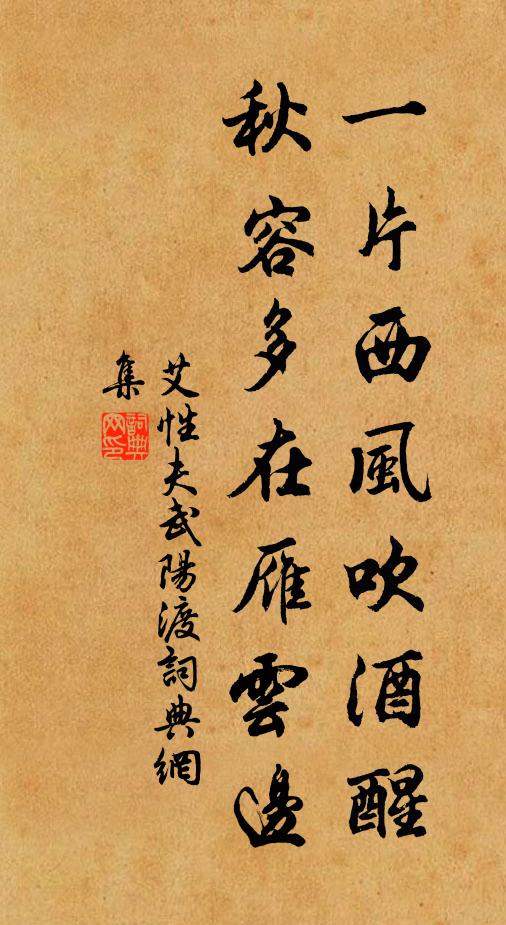 一片西風吹酒醒
秋容多在雁雲邊
艾性夫武陽渡詞典網
集
詞典网印